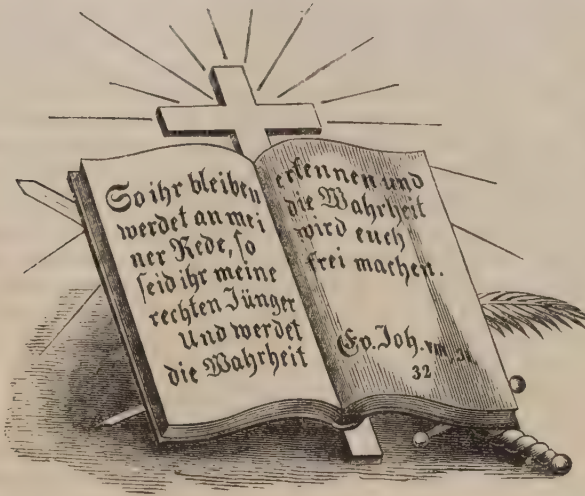 So ihr bleiben
werdet an mei
ner Rede, so
seid ihr meine
rechten Jünger
Und werdet
die Wahrheit
erkennen und
die Wahrheit
wird euch
frei machen.
Ev. Joh. VIII, 31.
32